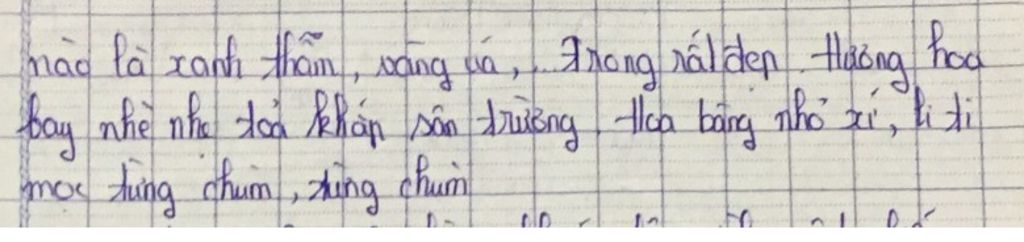 nào là xanh thẫm, vàng úa,... Trong rất đẹp. Hương hoa
bay nhè nhẹ toả khắp sân trường. Hoa bằng nhỏ xí, li ti
mọc từng chùm, từng chùm